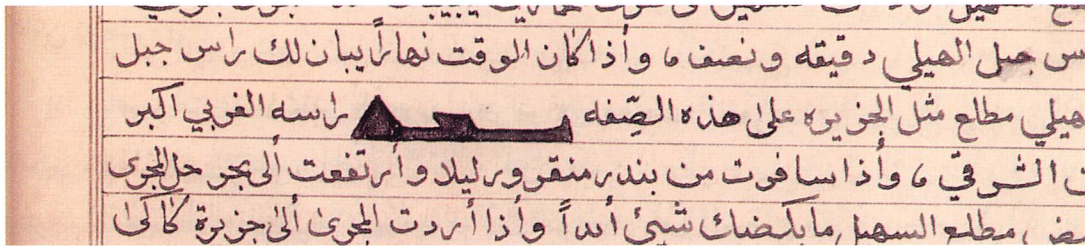 جبل الهيلي دقيقه ونصف ، وأذا كان الوقت نهاراً يبان لك راس جبل
هيلي مطلع مثل الجزيره على هذه الصّفه راسه الغربي اكبر
الشرقي ، وأذا سافرت من بندر منقرور ليلا وأرتفعت ألى بحر حل المجرى
مطلع السهيل مايكضك شيئ أبداً وأذا أردت المجرى ألى جزيرة